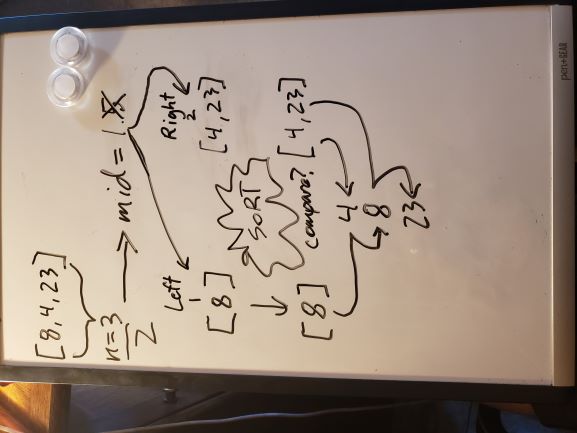 [8,4,23]
n=3
2
mid = 1.5
Left
1
[8]
Right
2
[4,23]
SORT
[8]
compare? [4,23]
4
8
23
pen+GEAR